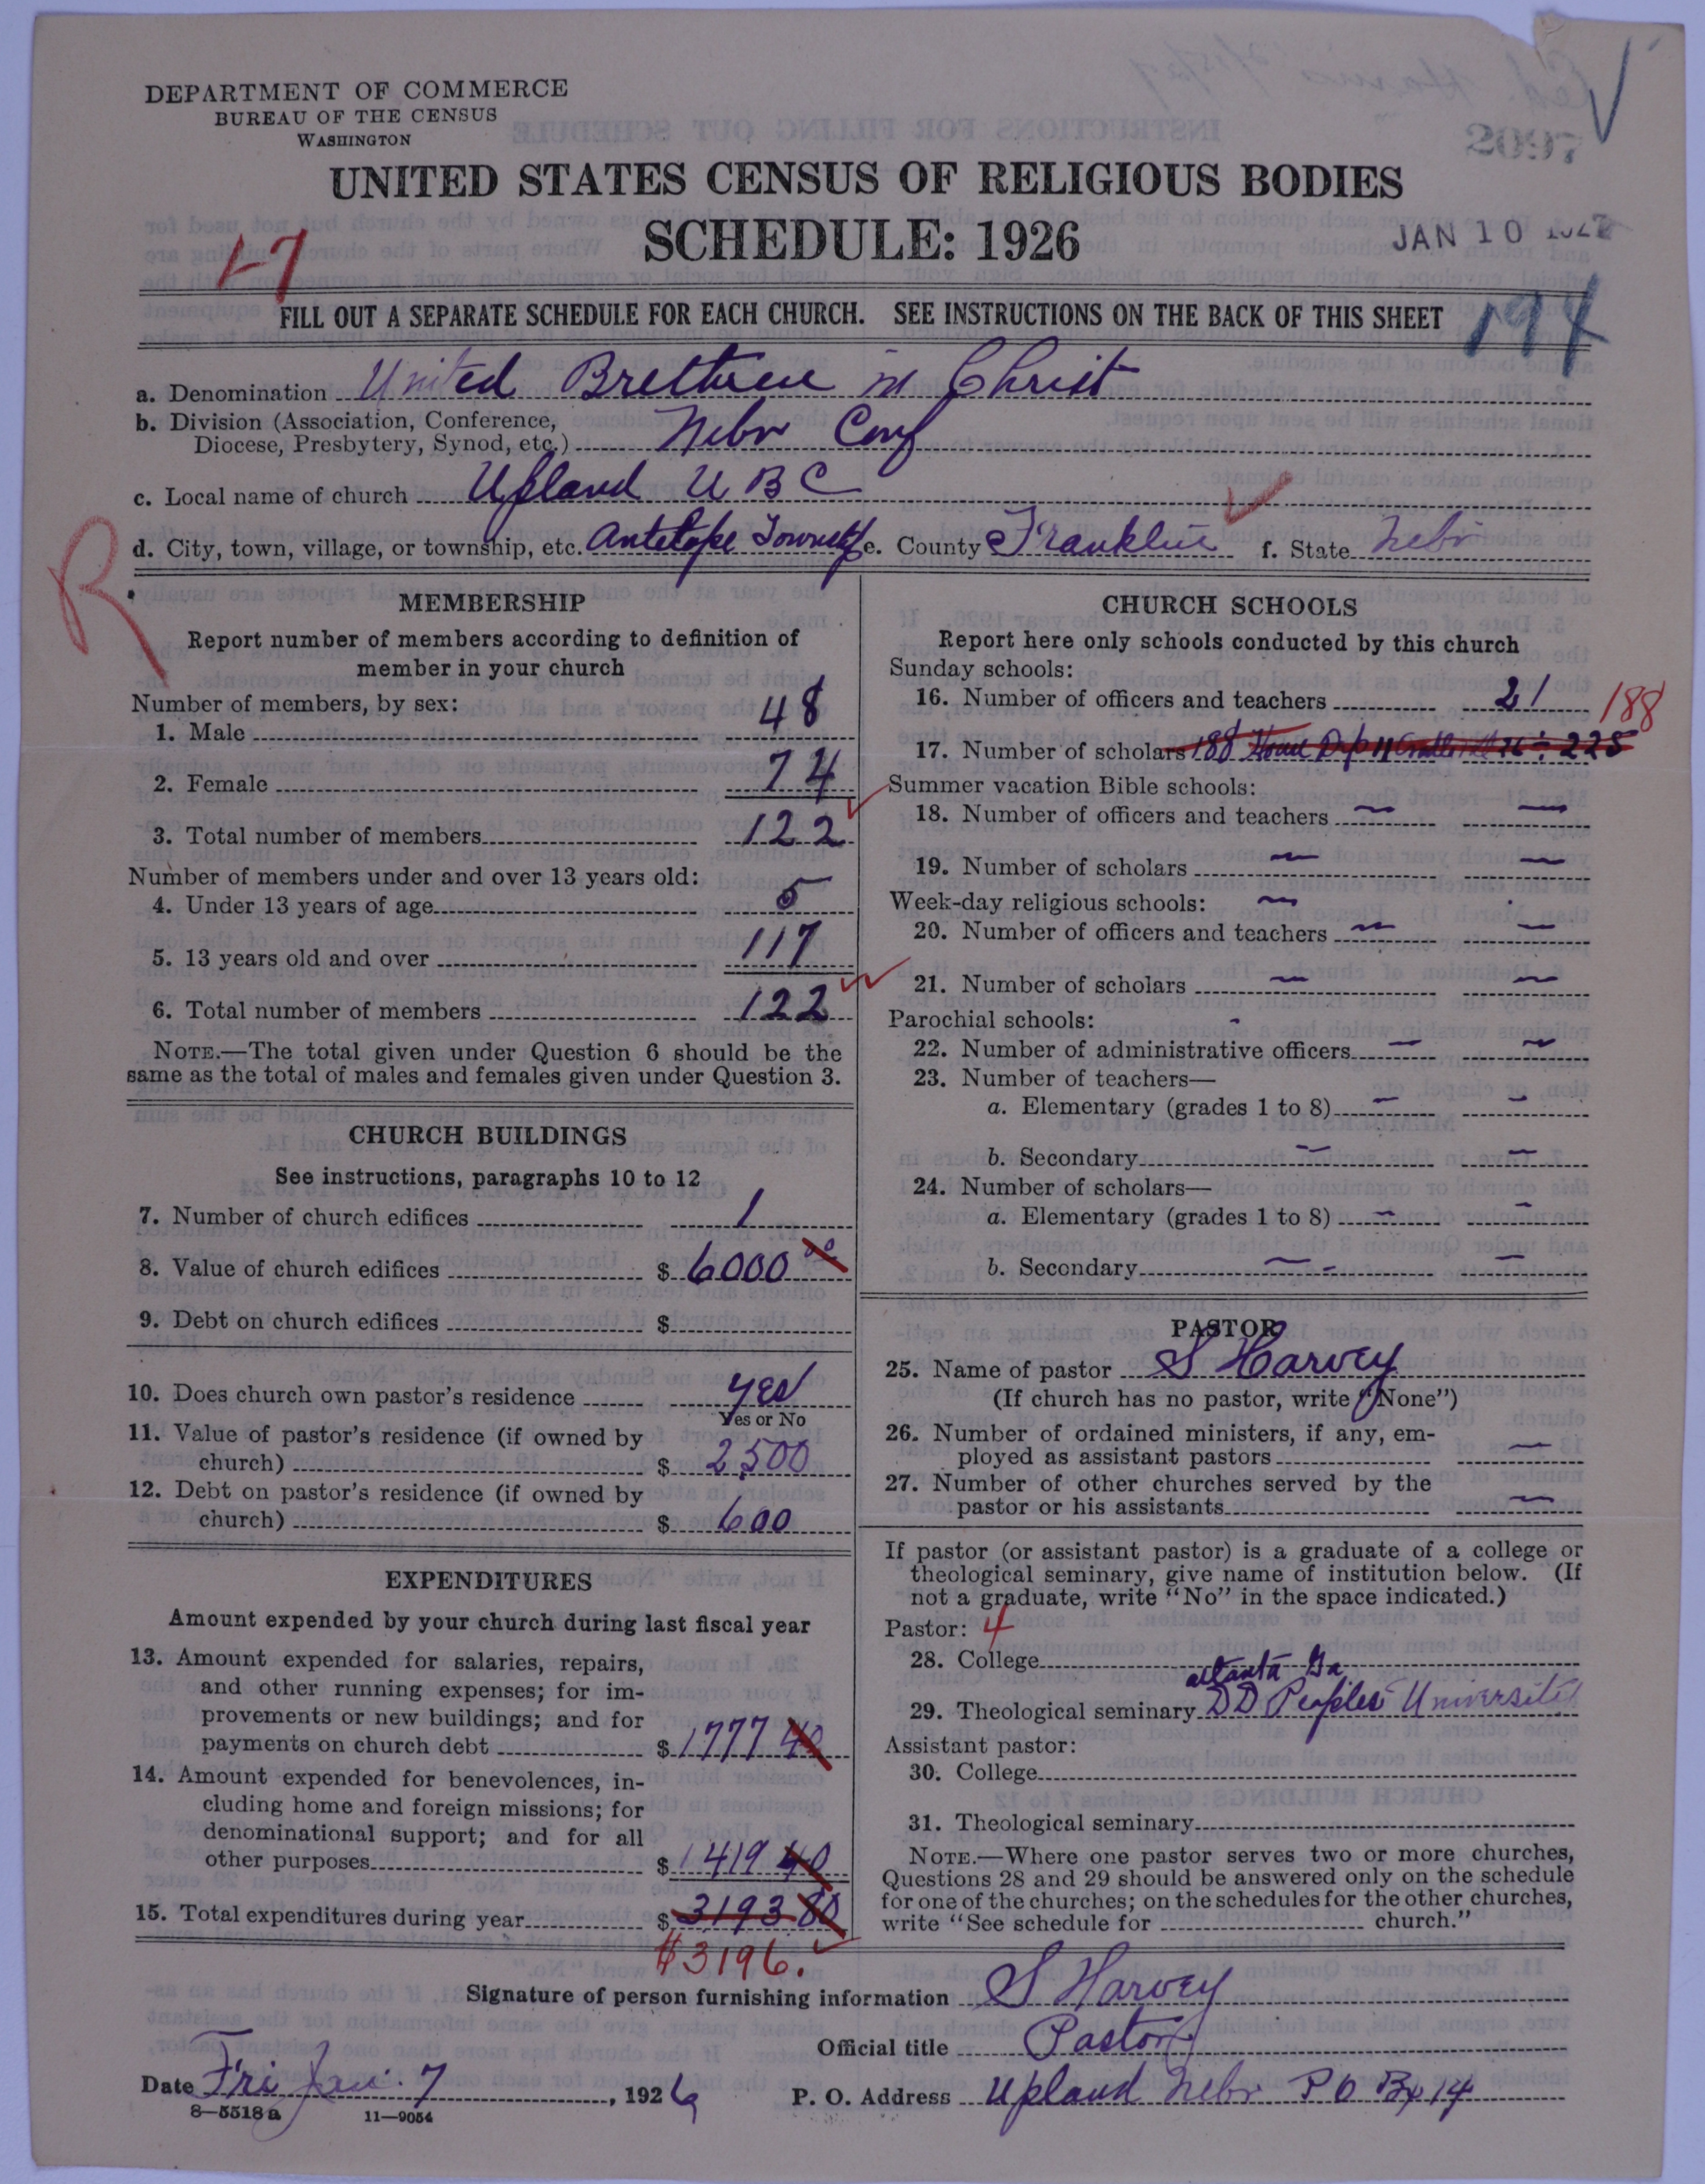 DEPARTMENT OF COMMERCE
BUREAU OF THE CENSUS
WASHINGTON
2097
UNITED STATES CENSUS OF RELIGIOUS BODIES
SCHEDULE: 1926
JAN 10 1927
17
FILL OUT A SEPARATE SCHEDULE FOR EACH CHURCH. SEE INSTRUCTIONS ON THE BACK OF THIS SHEET
194
a. Denomination United Brethren in Christ
b. Division (Association, Conference,
Diocese, Presbytery, Synod, etc.) Nebr Conf
c. Local name of church Upland U B C
d. City, town, village, or township, etc. Antelope Township e. County Franklin f. State Nebr
R
MEMBERSHIP
Report number of members according to definition of
member in your church
Number of members, by sex:
1. Male 48
2. Female 74
3. Total number of members 122
Number of members under and over 13 years old:
4. Under 13 years of age 5
5. 13 years old and over 117
6. Total number of members 122
NOTE.—The total given under Question 6 should be the
same as the total of males and females given under Question 3.
CHURCH BUILDINGS
See instructions, paragraphs 10 to 12
7. Number of church edifices 1
8. Value of church edifices $ 6000 00
9. Debt on church edifices $
10. Does church own pastor's residence yes
Yes or No
11. Value of pastor's residence (if owned by
church) $ 2500
12. Debt on pastor's residence (if owned by
church) $ 600
EXPENDITURES
Amount expended by your church during last fiscal year
13. Amount expended for salaries, repairs,
and other running expenses; for im-
provements or new buildings; and for
payments on church debt $ 1777 40
14. Amount expended for benevolences, in-
cluding home and foreign missions; for
denominational support; and for all
other purposes $ 1419 40
15. Total expenditures during year $ 3193 80
$3196.
CHURCH SCHOOLS
Report here only schools conducted by this church
Sunday schools:
16. Number of officers and teachers 21
188
17. Number of scholars 188 Home Dep 11 225
Summer vacation Bible schools:
18. Number of officers and teachers — —
19. Number of scholars — —
Week-day religious schools: —
20. Number of officers and teachers — —
21. Number of scholars — —
Parochial schools: -
22. Number of administrative officers — —
23. Number of teachers—
a. Elementary (grades 1 to 8) — —
b. Secondary — —
24. Number of scholars—
a. Elementary (grades 1 to 8) — —
b. Secondary — - —
PASTOR
25. Name of pastor S Harvey
(If church has no pastor, write "None")
26. Number of ordained ministers, if any, em-
ployed as assistant pastors —
27. Number of other churches served by the
pastor or his assistants —
If pastor (or assistant pastor) is a graduate of a college or
theological seminary, give name of institution below. (If
not a graduate, write "No" in the space indicated.)
Pastor: 4
28. College
atlanta Ga
29. Theological seminary DD Peoples University
Assistant pastor:
30. College
31. Theological seminary
NOTE.—Where one pastor serves two or more churches,
Questions 28 and 29 should be answered only on the schedule
for one of the churches; on the schedules for the other churches,
write "See schedule for church."
Signature of person furnishing information S Harvey
Official title Pastor
Date Fri Jan. 7, 1926 P. O. Address Upland Nebr P O Bx 14
8—5518 a 11—9054